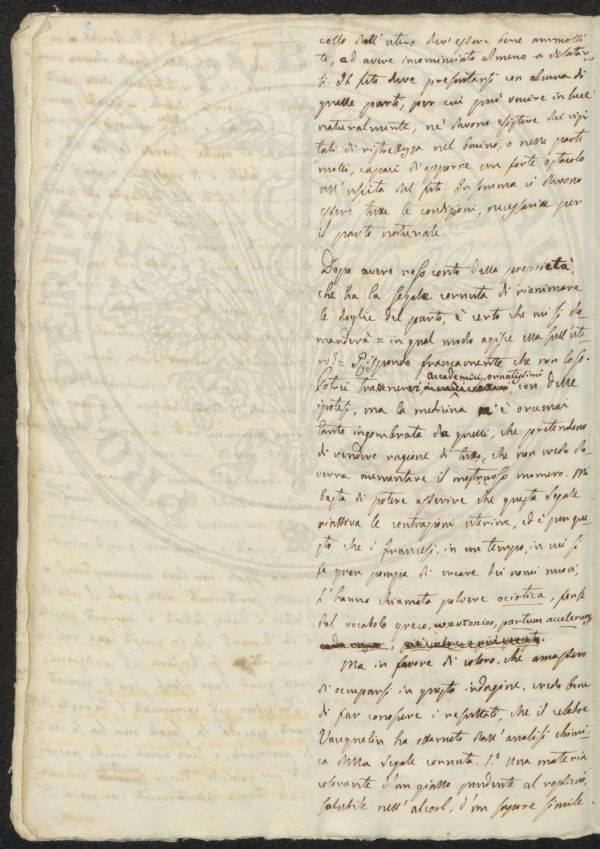 collo dell'utero dev'essere bene ammolli
te, ed avere incominciato almeno a dilatar
si. Il feto deve presentarsi con alcuna di
quelle parti, per cui può venire in luce
naturalmente, nè devono esistere dei vizi
tali di ristrettezza nel bacino, o nelle parti
molli, capaci di opporre un forte ostacolo
all'uscita del feto. In somma ci devono
essere tutte le condizioni, necessarie per
il parto naturale.
Dopo avere reso conto della proprietà,
che ha la segale cornuta di rianimare
le doglie del parto, è certo che mi si do-
manderà = in qual modo agisce essa sull'ute
ro? = Rispondo francamente che non lo so.
accademici ornatissimi
Potrei trattenervi con delle
ipotesi, ma la medicina n'è oramai
tanto ingombrata da quelli, che pretendono
di rendere ragione di tutto, che non credo do-
verne aumentare il mostruoso numero. Mi
basta di potere asserire che questa segale
riattiva le contrazioni uterine, ed è per que
sto che i francesi in un tempo, in cui si
fa gran pompa di creare dei nomi nuovi,
l'hanno chiamata polvere ociotica, forse
dal vocabolo greco, partum accelerans
Ma in favore di coloro, che amassero
di occuparsi in questa indagine, credo bene
di far conoscere i resultati, che il celebre
Vauquelin ha ottenuto dall'analisi chimi
ca della segale cornuta. 1.° Una materia
colorante d'un giallo pendente al rossiccio,
solubile nell'alcool, d'un sapore simile